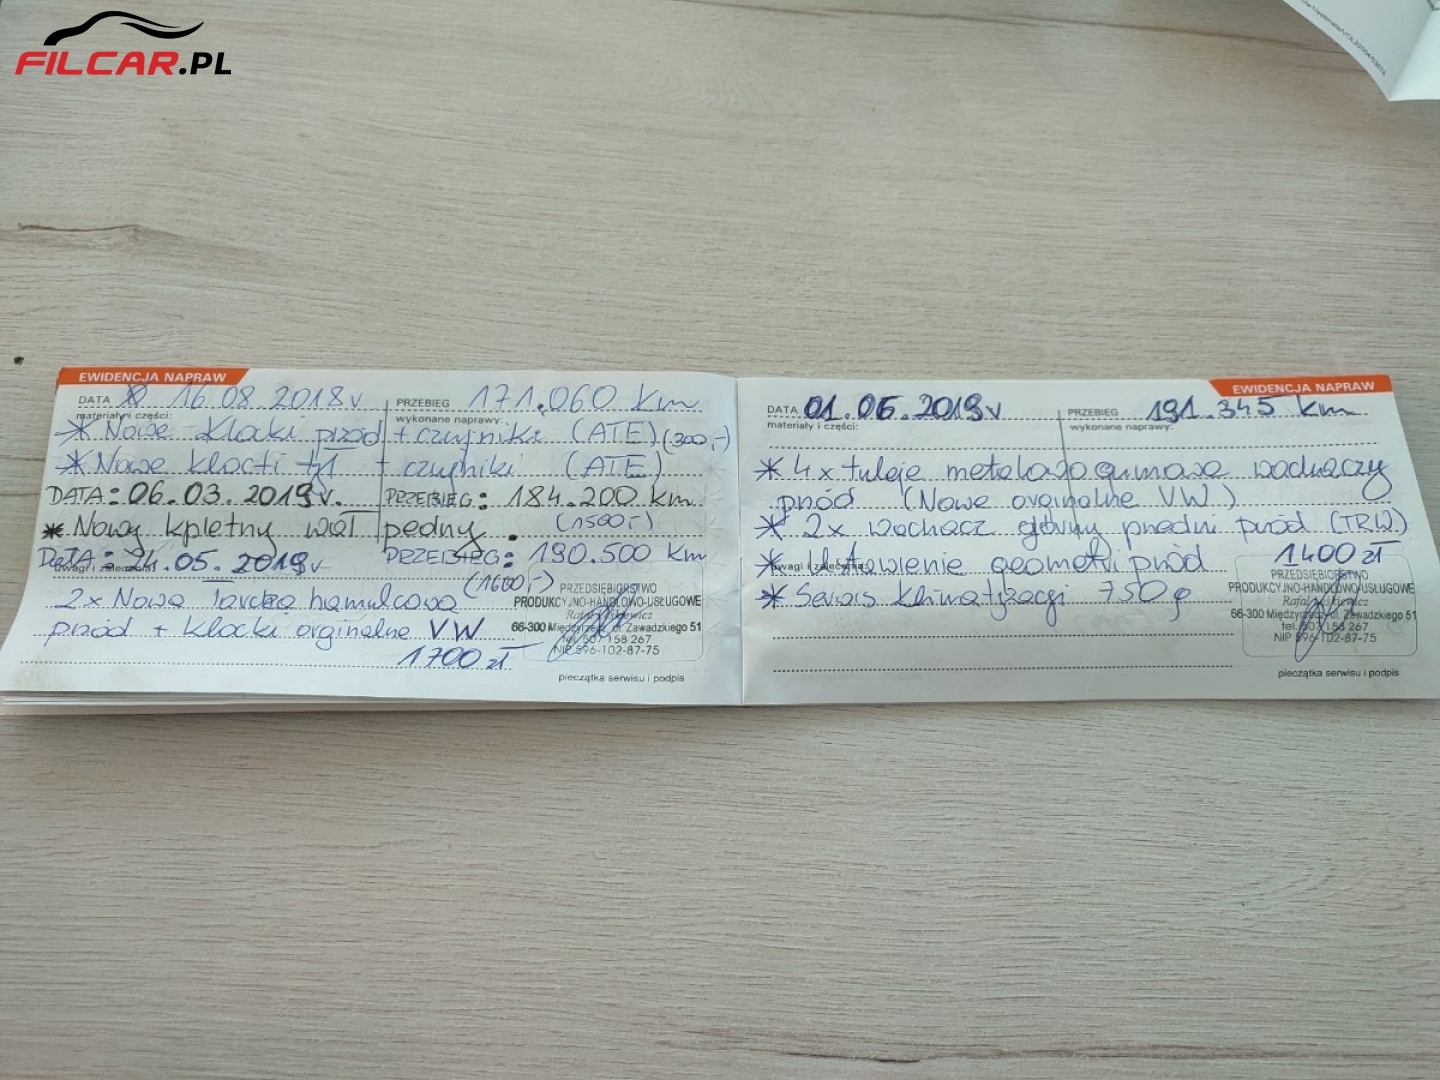 FILCAR.PL
EWIDENCJA NAPRAW
DATA 16.08.2018r PRZEBIEG 171.060 km
materiały i części: wykonane naprawy:
* Nowe klocki przód + czujniki (ATE) (300,-)
* Nowe klocki tył + czujniki (ATE)
DATA: 06.03.2019r. PRZEBIEG: 184.200 km
* Nowy kpletny wał pędny. (1500,-)
DATA: 24.05.2019r PRZEBIEG: 190.500 km
uwagi i zalecenia: (1600,-)
2x Nowa tarcza hamulcowa
przód + klocki orginalne VW
1700 zł
PRZEDSIĘBIORSTWO
PRODUKCYJNO-HANDLOWO-USŁUGOWE
Rafał
66-300 Międzyrzecz, ul. Zawadzkiego 51
tel. 507 158 267
NIP 596-102-87-75
pieczątka serwisu i podpis
EWIDENCJA NAPRAW
DATA 01.06.2019r PRZEBIEG 191.345 km
materiały i części: wykonane naprawy:
* 4x tuleje metalowo gumowe wachaczy
przód (Nowe orginalne VW)
* 2x wachacz główny przedni przód (TRW)
* Ustawienie geometri przód 1400 zł
uwagi i zalecenia:
* Serwis klimatyzacji 750g
PRZEDSIĘBIORSTWO
PRODUKCYJNO-HANDLOWO-USŁUGOWE
Rafał
66-300 Międzyrzecz, ul. Zawadzkiego 51
tel. 507 158 267
NIP 596-102-87-75
pieczątka serwisu i podpis